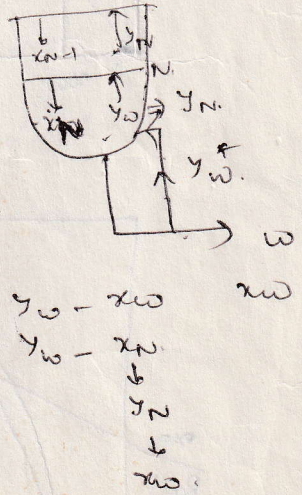 xN-1 yN
N.
xN yW yN.
yW*
W
xW
yW - xW
yW - xN.
↓
yN
↓
xW.